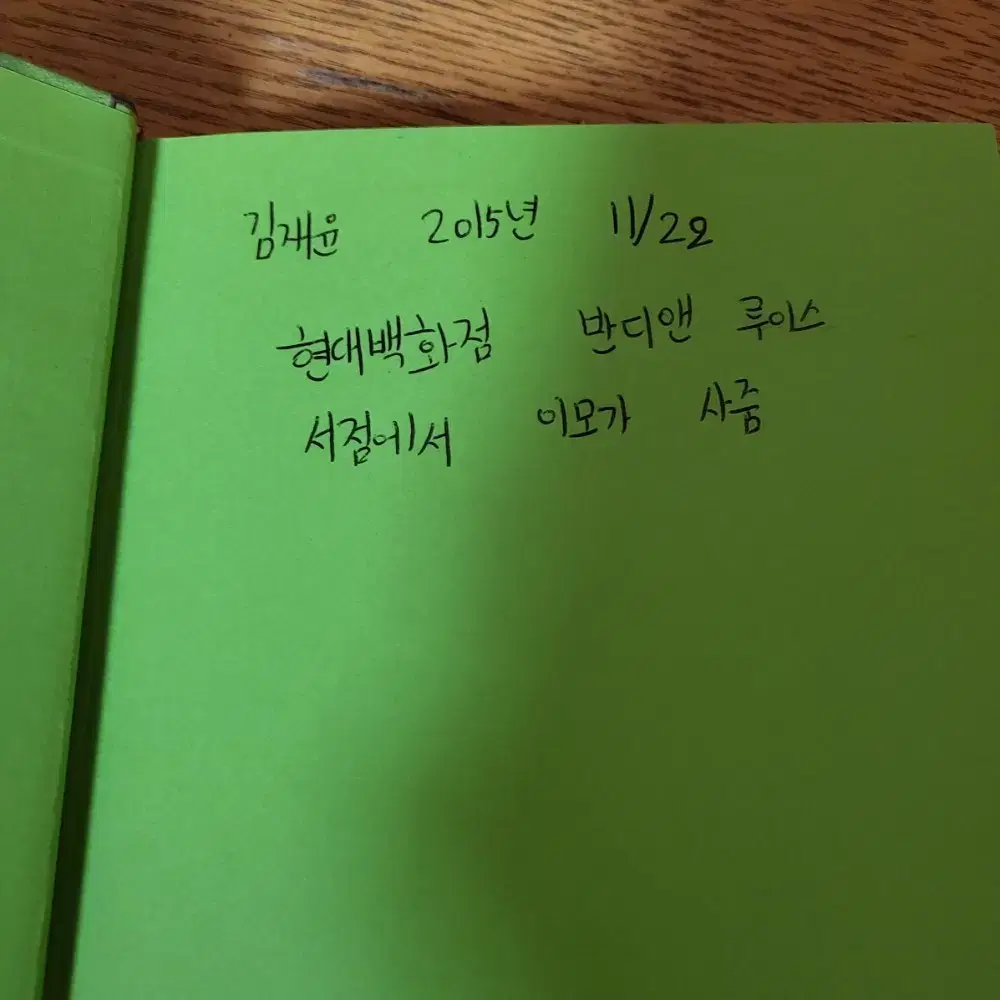 김재윤 2015년 11/28
현대백화점 반디앤 루이스
서점에서 이모가 사줌